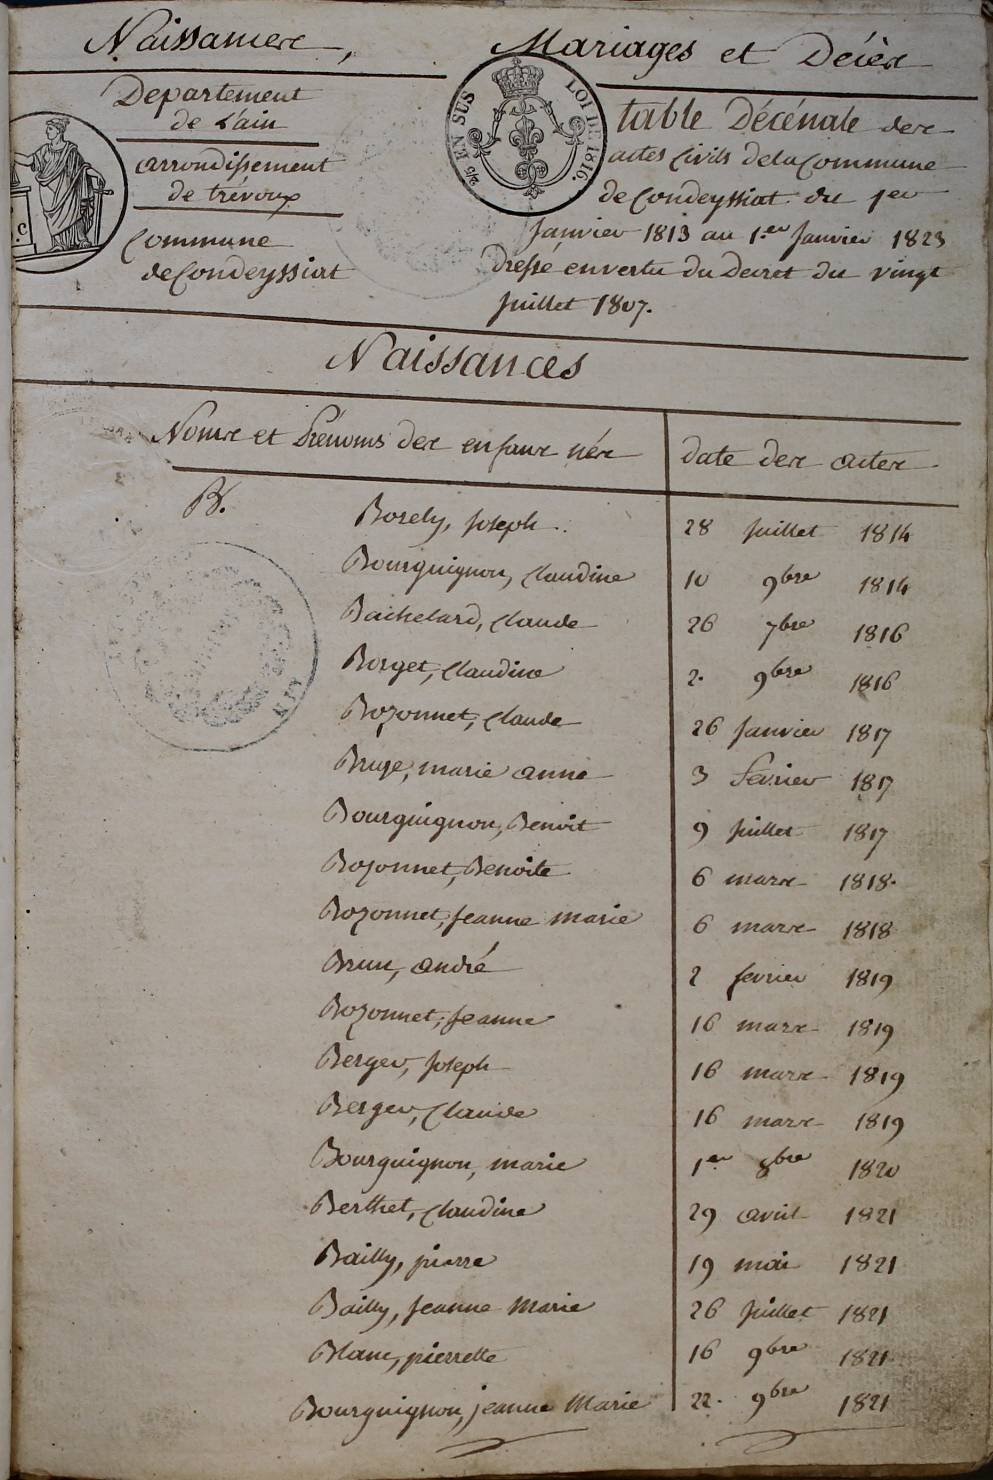 Naissances, Mariages et Décès
Departement
de L'ain
arrondissement
de trévoux
Commune
de Condeyssiat
EN SUS LOI DE 1816.
table Décénale des
actes Civils de la Commune
de Condeyssiat du 1er
Janvier 1813 au 1.er Janvier 1823
Dressé en vertu du Decret du vingt
Juillet 1807.
Naissances
Noms et Prénoms des enfans nés date des actes
B.
Borely, Joseph 28 Juillet 1814
Bourguignon, Claudine 10 9bre 1814
Bachelard, Claude 26 7bre 1816
Borget, Claudine 2. 9bre 1816
Bozonnet, Claude 26 Janvier 1817
Bruge, marie anne 3 Fevrier 1817
Bourguignon, Benoit 9 Juillet 1817
Bozonnet, Benoite 6 mars 1818.
Bozonnet, Jeanne marie 6 mars 1818
Brun, andré 2 fevrier 1819
Bozonnet, Jeanne 16 mars 1819
Berger, Joseph 16 mars 1819
Berger, Claude 16 mars 1819
Bourguignon, marie 1er 8bre 1820
Berthet, Claudine 29 avril 1821
Bailly, pierre 19 mai 1821
Bailly, Jeanne Marie 26 Juillet 1821
Blanc, pierrette 16 9bre 1821
Bourguignon, jeanne Marie 22. 9bre 1821